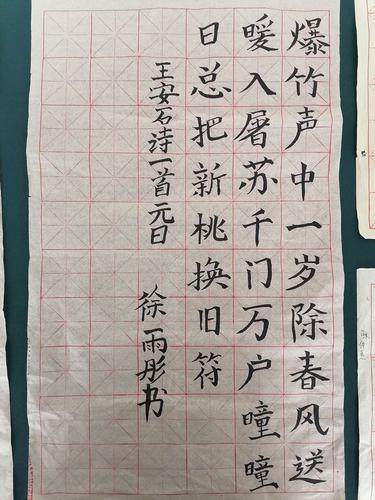 爆竹声中一岁除春风送
暖入屠苏千门万户曈曈
日总把新桃换旧符
王安石诗一首元日
徐雨彤书